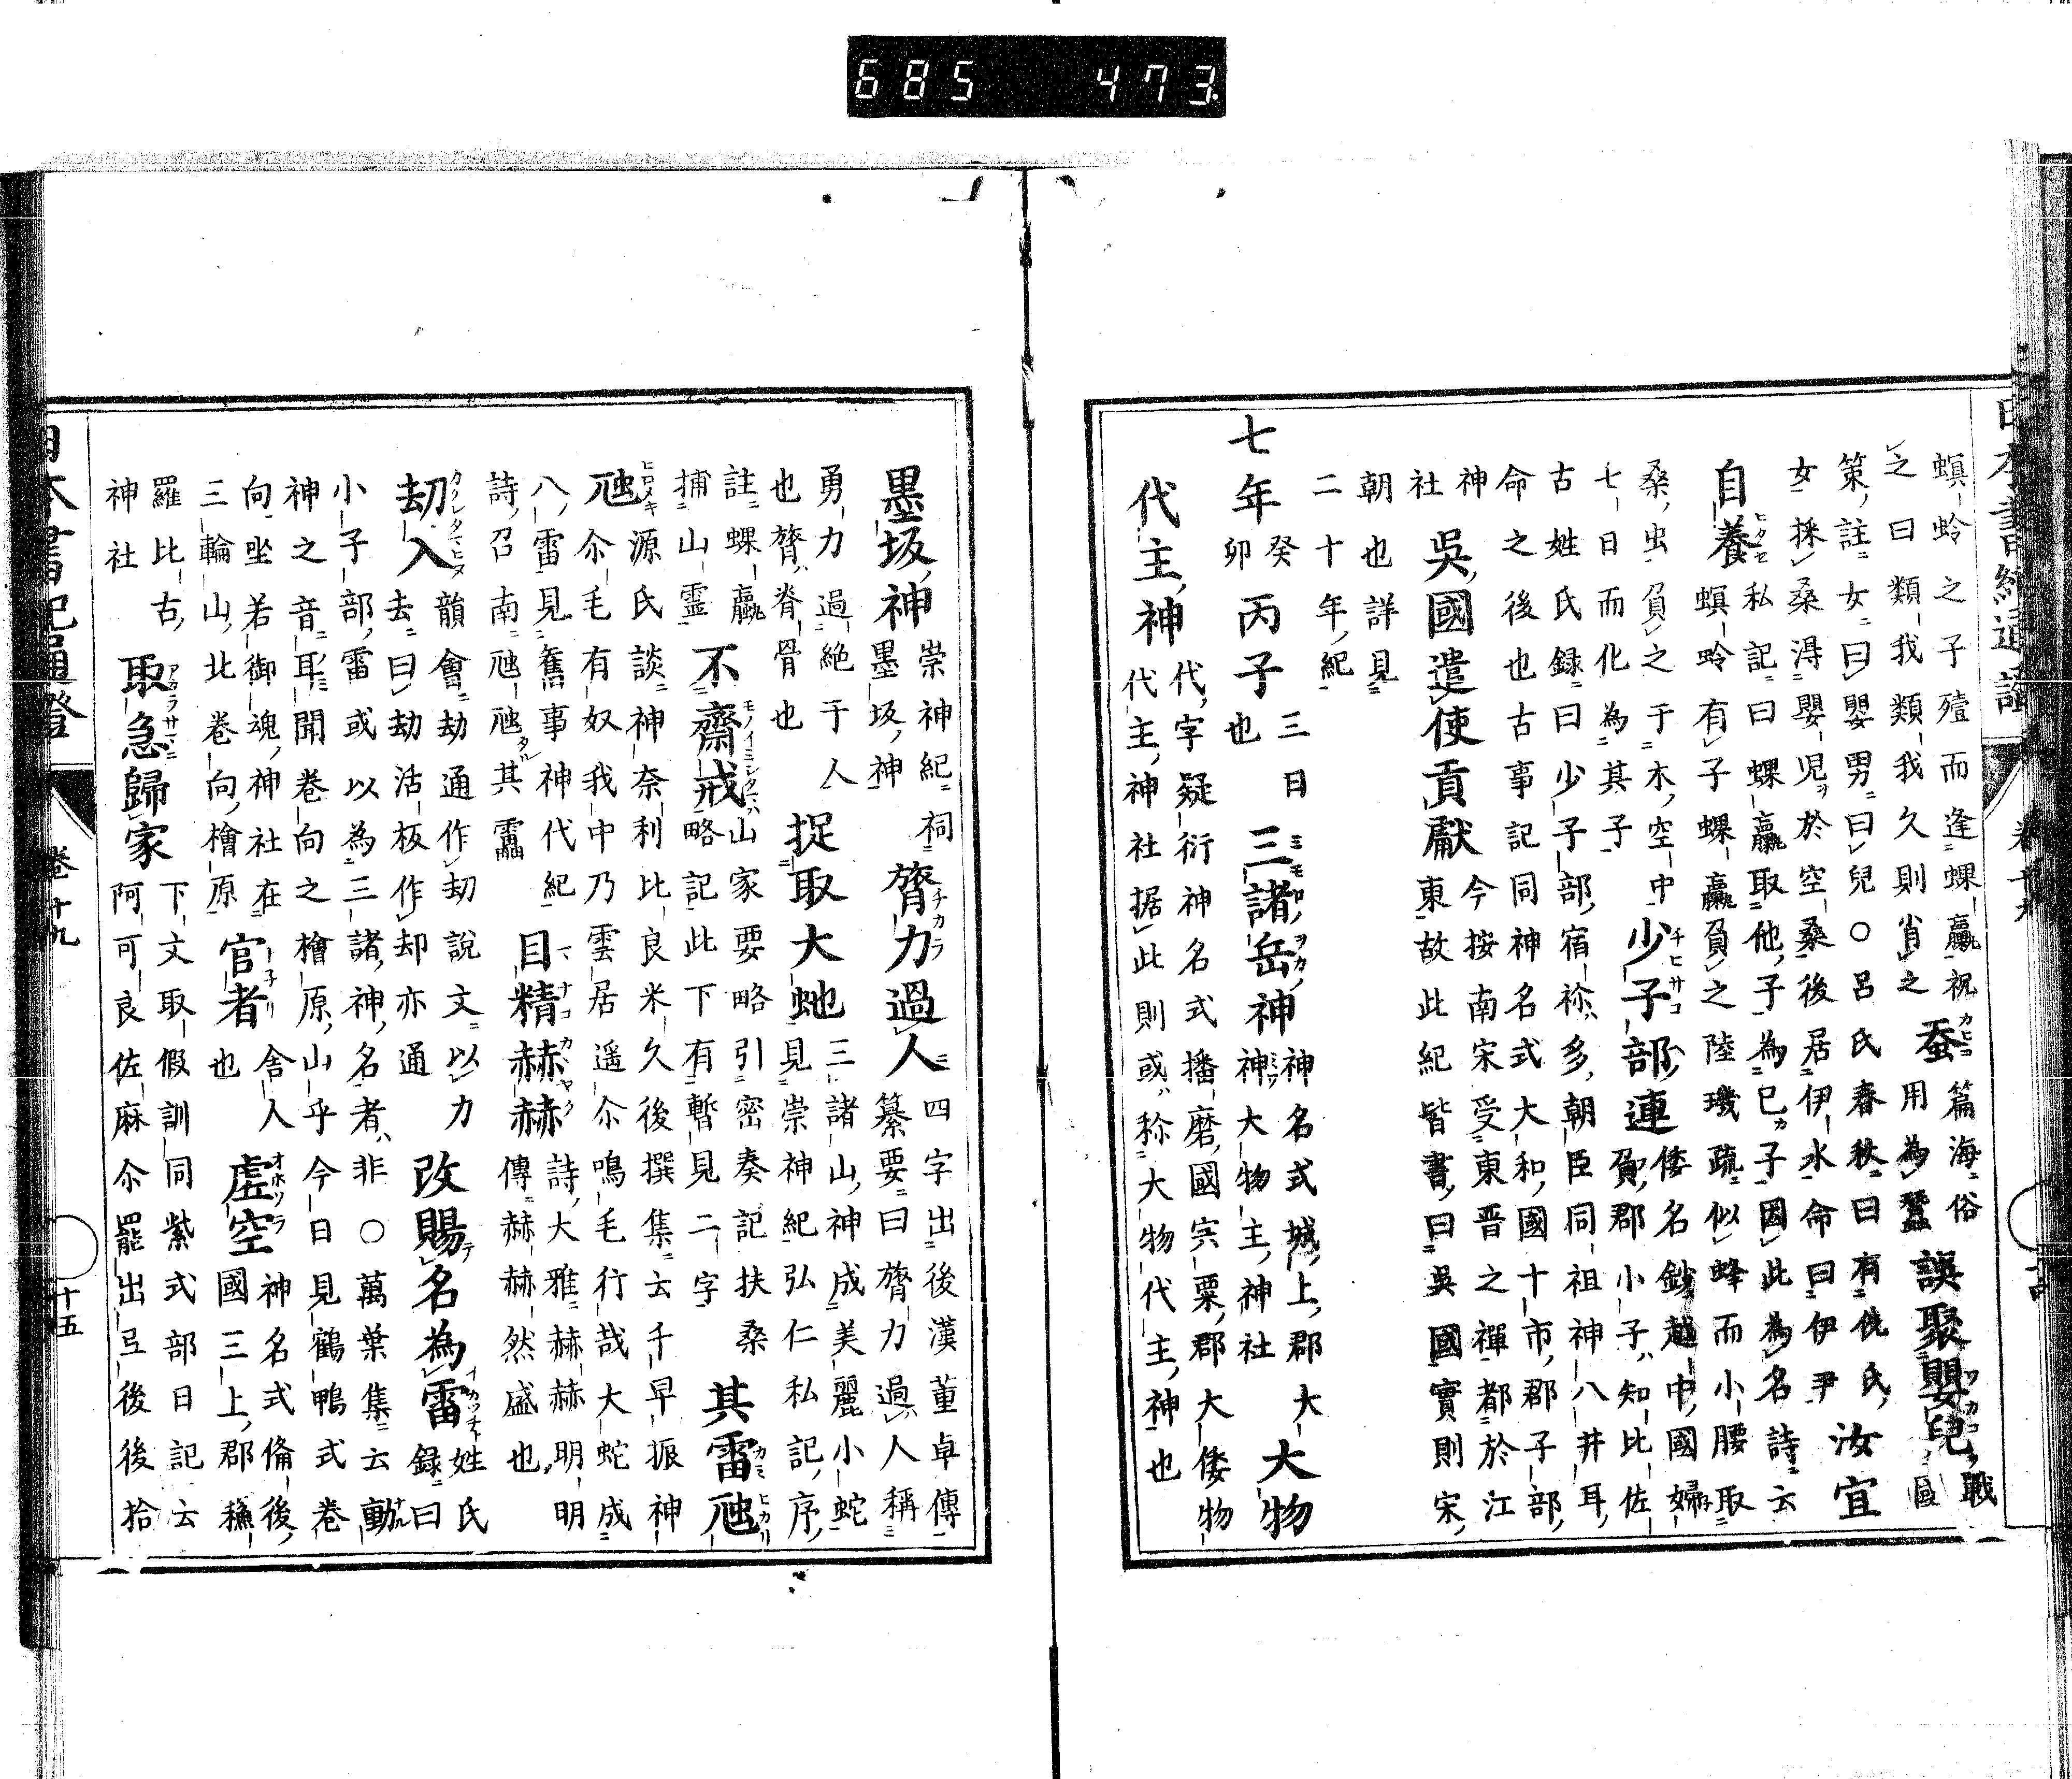 685 473
螟蛉之子殪而逢蜾蠃祝
之曰類我類我久則肖之
蚕
篇海俗
用為蠶
誤聚嬰兒
戰
國
策註女曰嬰男曰兒○呂氏春秋曰有侁氏
女採桑得嬰兒於空桑後居伊水命曰伊尹
汝宜
自養
私記曰蜾蠃取他子為己子因此為名詩云
螟蛉有子蜾蠃負之陸璣疏似蜂而小腰取
桑虫負之于木空中
七日而化為其子
少子部連
倭名鈔越中國婦
負郡小子知比佐
古姓氏録曰少子部宿祢多朝臣同祖神八井耳
命之後也古事記同神名式大和國十市郡子部
神
社
吳國遣使貢獻
今按南宋受東晋之禪都於江
東故此紀皆書曰吳國實則宋
朝也詳見
二十年紀
七年
癸
卯
丙子
三日
也
三諸岳神
神名式城上郡大
神大物主神社
大物
代主神
代字疑衍神名式播磨國宍粟郡大倭物
代主神社据此則或称大物代主神也
日本書紀通證 卷十九 十五
墨坂神
崇神紀祠
墨坂神
膂力過人
四字出後漢董卓傳
纂要曰膂力過人稱
勇力過絶于人
也膂脊骨也
捉取大虵
三諸山神成美麗小蛇
見崇神紀弘仁私記序
註蜾蠃
捕山霊
不齋戒
山家要略引密奏記扶桑
略記此下有暫見二字
其雷虺
虺
源氏談神奈利比良米久後撰集云千早振神
尒毛有奴我中乃雲居遥尒鳴毛行哉大蛇成
八雷見舊事神代紀
詩召南虺虺其靁
目精赫赫
詩大雅赫赫明明
傳赫赫然盛也
劫入
韻會劫通作刧說文以力
去曰劫活板作却亦通
改賜名為雷
姓氏
録曰
小子部雷或以為三諸神名者非○萬葉集云動
神之音耳聞巻向之檜原山乎今日見鶴鴨式卷
向坐若御魂神社在
三輪山北卷向檜原
官者
舎人
也
虚空
神名式脩後
國三上郡蘓
羅比古
神社
取急歸家
下文取假訓同紫式部日記云
阿可良佐麻尒罷出弖後後拾